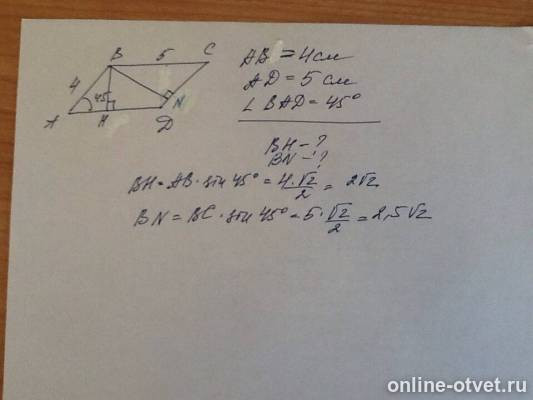 B 5 C
4
45°
A H D N
AB = 4 см
AD = 5 см
∠ BAD = 45°
BH - ?
BN - ?
BH = AB · sin 45° = 4 · √2/2 = 2√2
BN = BC · sin 45° = 5 · √2/2 = 2,5 √2
online-otvet.ru